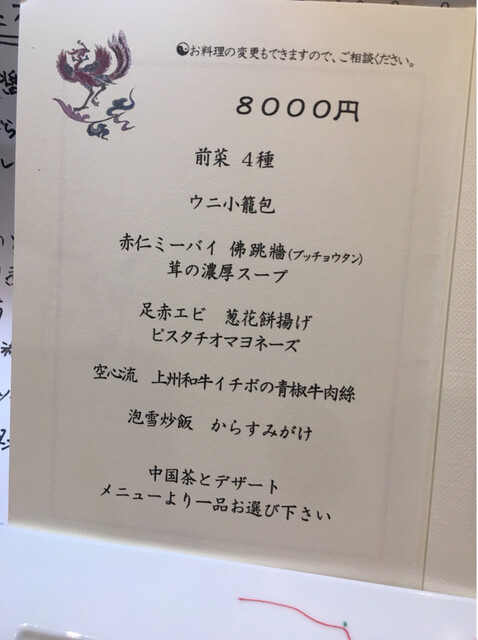 ☯お料理の変更もできますので、ご相談ください。
8000円
前菜 4種
ウニ小籠包
赤仁ミーバイ 佛跳牆(ブッチョウタン)
茸の濃厚スープ
足赤エビ 葱花餅揚げ
ピスタチオマヨネーズ
空心流 上州和牛イチボの青椒牛肉絲
泡雪炒飯 からすみがけ
中国茶とデザート
メニューより一品お選び下さい